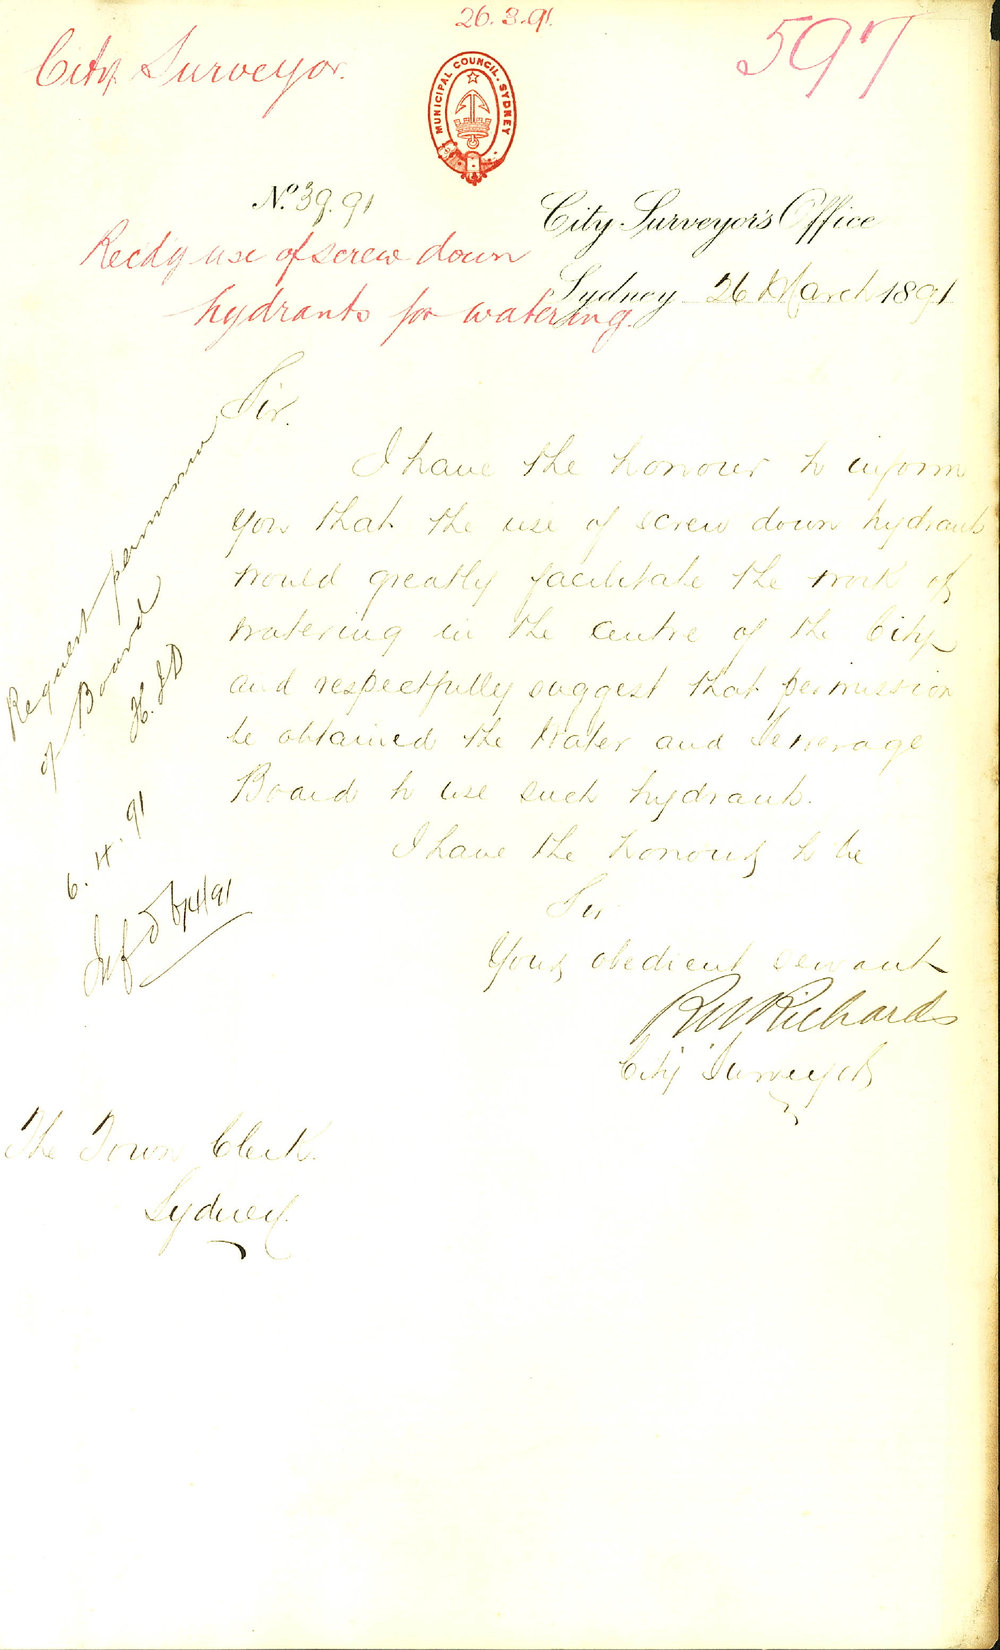 26.3.91.
City Surveyor.
597
MUNICIPAL COUNCIL. SYDNEY
No. 39.91
City Surveyor's Office
Recdg use of screw down
hydrants for watering.
Sydney 26 March 1891
Sir.
I have the honour to inform
you that the use of screw down hydrants
would greatly facilitate the work of
watering in the centre of the City
and respectfully suggest that permission
be obtained the Water and Sewerage
Board to use such hydrants.
I have the honour to be
Sir
Your obedient servant
RW Richards
City Surveyor
Request permission
of Board
H.
6.4.91
6/4/91
The Town Clerk.
Sydney.